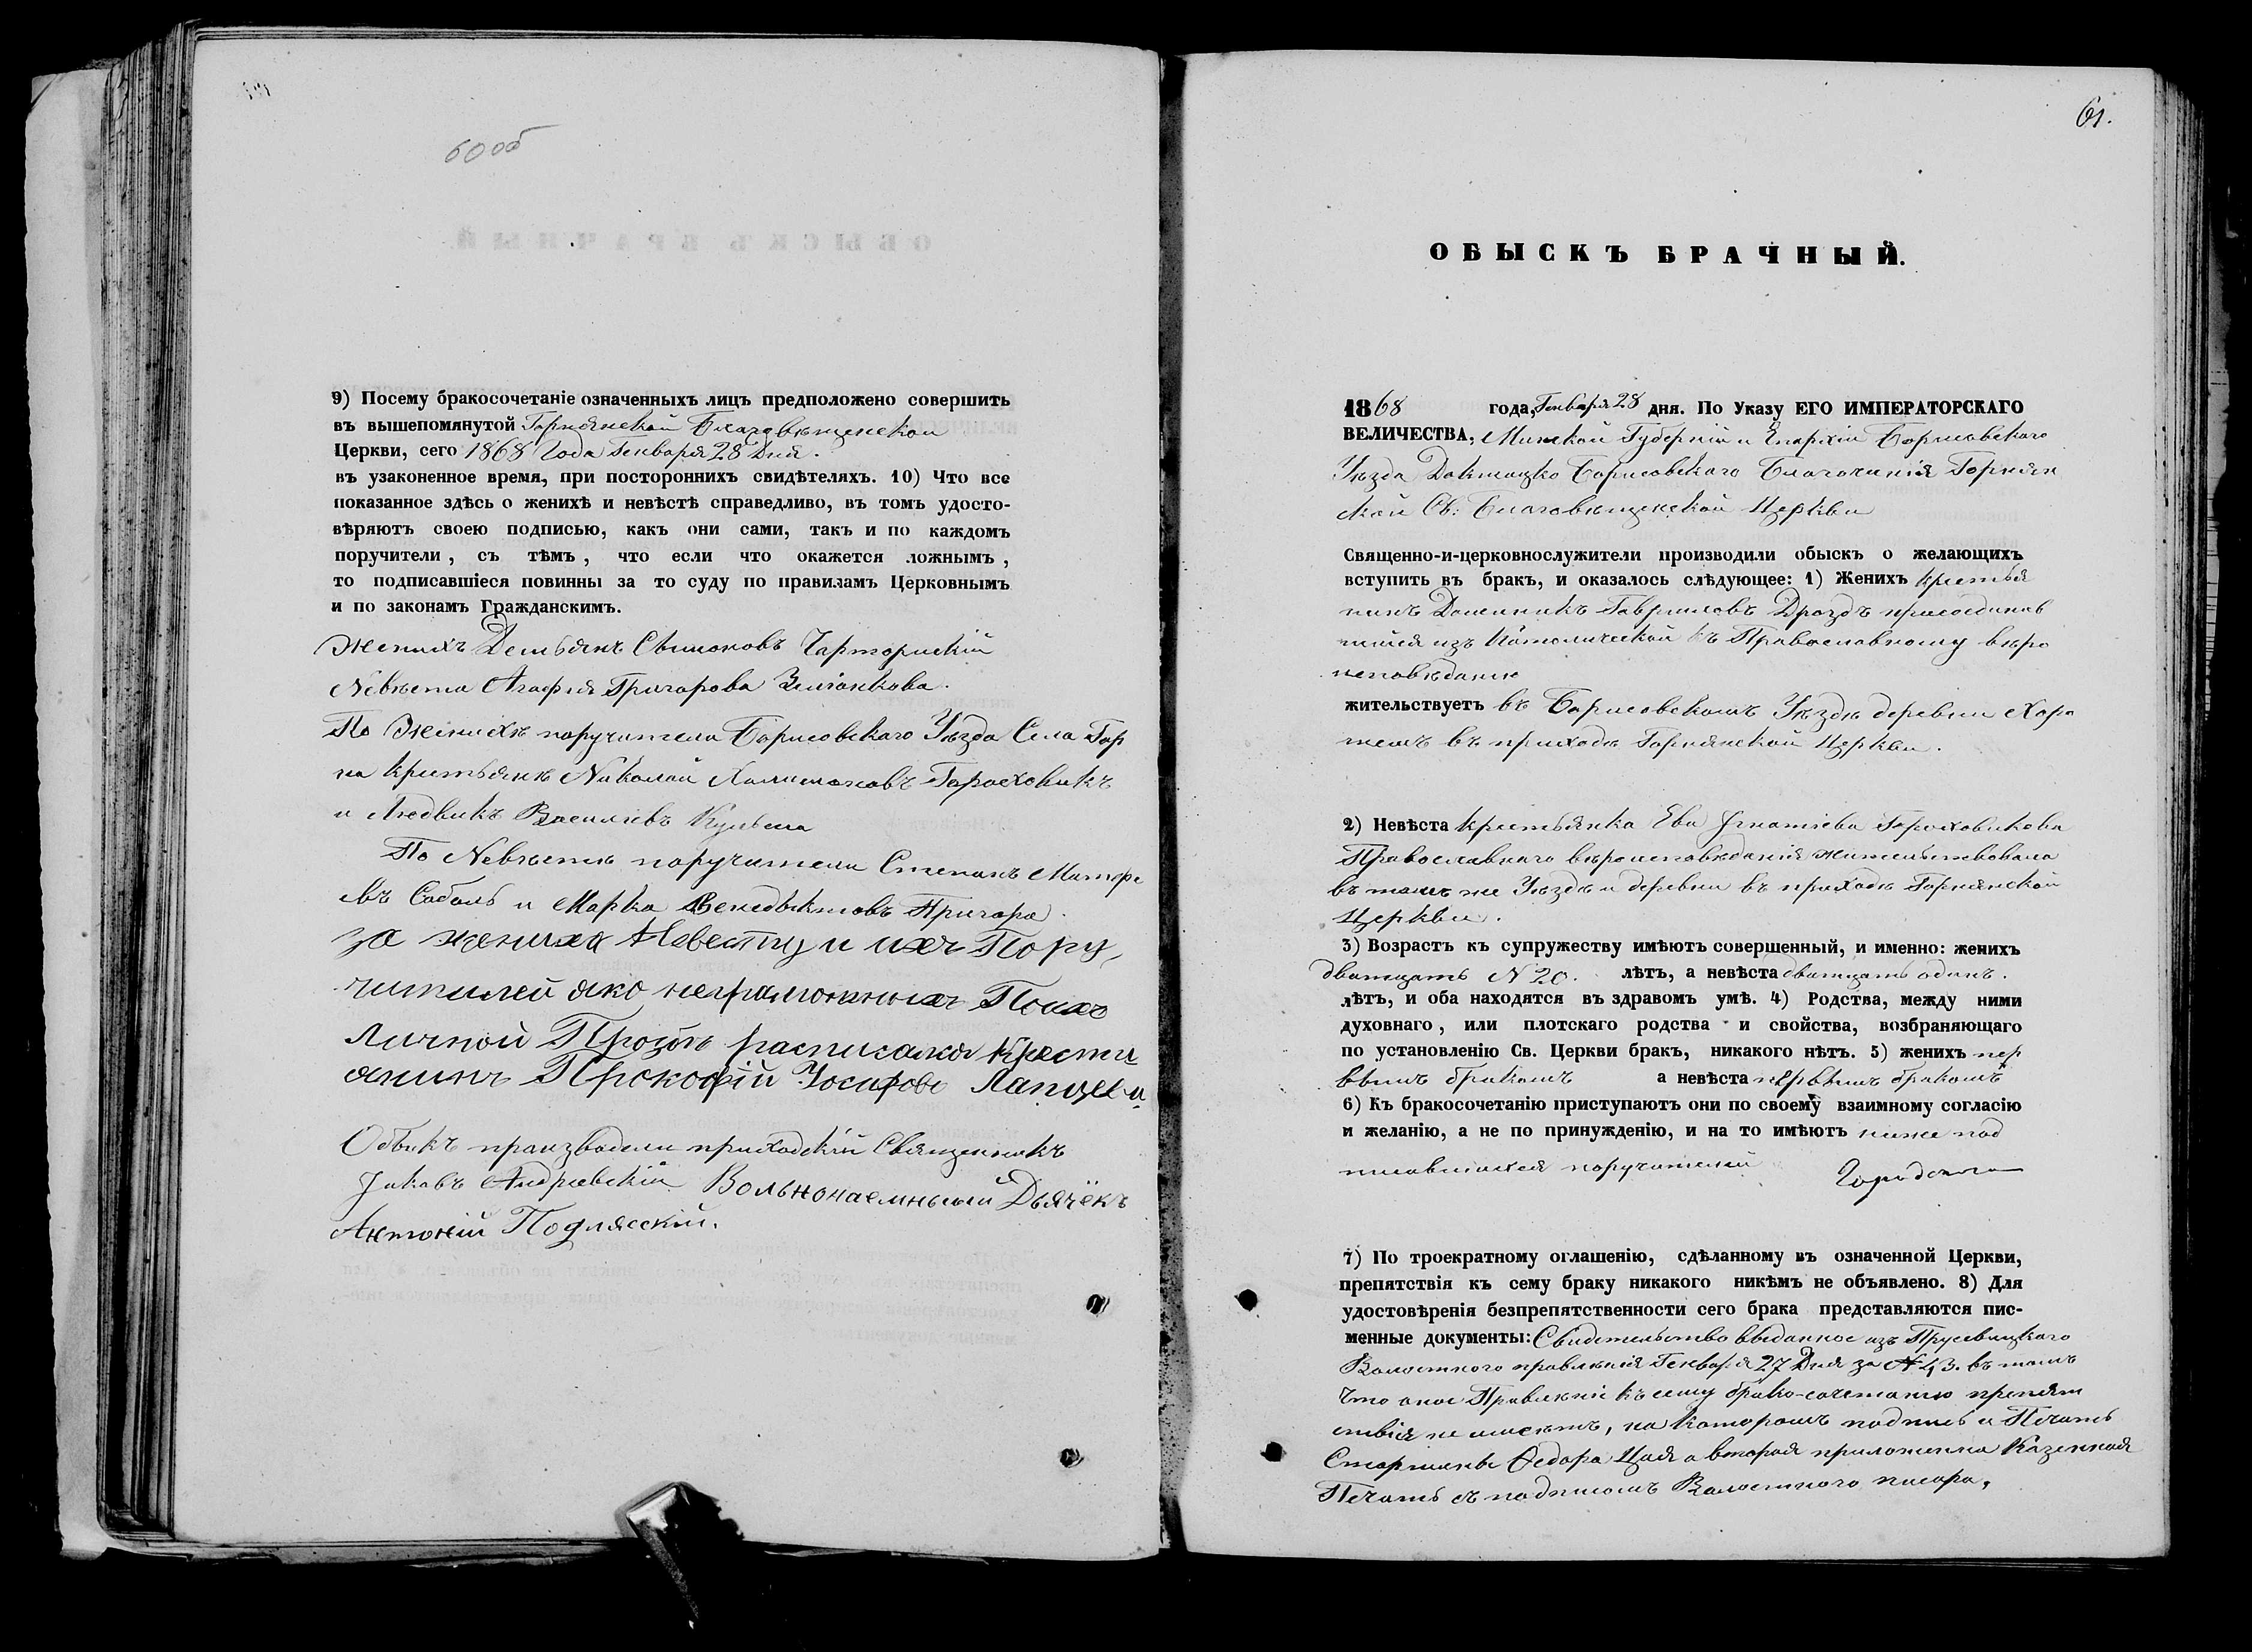 60 об
9) Посему бракосочетаніе означенныхъ лицъ предположено совершить
въ вышепомянутой Горнянской Благовѣщенской
Церкви, сего 1868 Года Генваря 28 Дня.
въ узаконенное время, при постороннихъ свидѣтеляхъ. 10) Что все
показанное здѣсь о женихѣ и невѣстѣ справедливо, въ томъ удосто-
вѣряютъ своею подписью, какъ они сами, такъ и по каждомъ
поручители, съ тѣмъ, что если что окажется ложнымъ,
то подписавшіеся повинны за то суду по правиламъ Церковнымъ
и по законамъ Гражданскимъ.
Женихъ Демьянъ Симоновъ Чарторискій
Невѣста Агафія Григорова
По Женихѣ поручители Борисовскаго Уѣзда Села Гор
на крестьянѣ Николай Халимоновъ Гороховикъ
и Людвикъ Василіевъ
По Невѣстѣ поручители Степанъ Матѳе
евъ Соболь и Марко Венедыктовъ Григора.
за жениха Невесту и ихъ Пору,
чителей яко неграмотныхъ Поихъ
Личной Прозбѣ расписался Крести
янинъ Прокофій Іосифовъ
Обыкъ производили приходскій Священникъ
Іаковъ Андріевскій Вольнонаемныій Дьячёкъ
Антоній Подлясскій.
61.
ОБЫСКЪ БРАЧНЫЙ.
1868 года, Генваря 28 дня. По Указу ЕГО ИМПЕРАТОРСКАГО
ВЕЛИЧЕСТВА, Минской Губерніи и Епархіи Борисовскаго
Уѣзда Докшицко Борисовскаго Благочинія Горнян
ской Св: Благовѣщенской Церкви
Священно-и-церковнослужители производили обыскъ о желающихъ
вступить въ бракъ, и оказалось слѣдующее: 1) Женихъ крестья
нинъ Доминикъ Гавриловъ Дроздъ присоединив
шійся изъ Католической къ Православному вѣро
исповѣданію
жительствуетъ въ Борисовскомъ Уѣздѣ деревни
въ приходѣ Горнянской Церкви.
2) Невѣста крестьянка Ева Игнатіева Гороховикова
Православнаго вѣроисповѣданія жительствовала
въ томъ же Уѣздѣ и деревни въ приходѣ Горнянской
Церкви.
3) Возрастъ къ супружеству имѣютъ совершенный, и именно: женихъ
двацать N 20. лѣтъ, а невѣста двацать одинъ.
лѣтъ, и оба находятся въ здравомъ умѣ. 4) Родства, между ними
духовнаго, или плотскаго родства и свойства, возбраняющаго
по установленію Св. Церкви бракъ, никакого нѣтъ. 5) женихъ пер
вымъ бракомъ а невѣста первымъ бракомъ
6) Къ бракосочетанію приступаютъ они по своему взаимному согласію
и желанію, а не по принужденію, и на то имѣютъ ниже под
писавшихся поручителей
7) По троекратному оглашенію, сдѣланному въ означенной Церкви,
препятствія къ сему браку никакого никѣмъ не объявлено. 8) Для
удостовѣренія безпрепятственности сего брака представляются пис-
менные документы: Свидетельство выданное изъ Прусевицкаго
Волостного правленія Генваря 27 Дня за N 43. въ томъ
что оное Правленіе къ сему брако-сочетанію препят
ствія не имѣетъ, на которомъ подпись и Печать
Старшины Ѳедора Цая а вторая приложенна Казенная
Печать съ подписомъ Волостного писара,